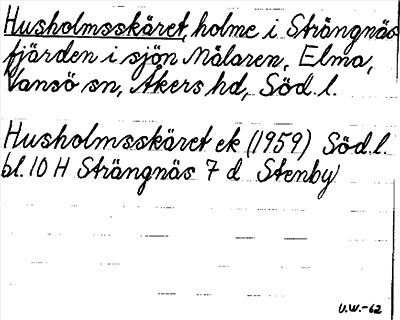 Husholmsskäret, holme i Strängnäs
fjärden i sjön Mälaren, Elma,
Vansö sn, Åkers hd, Söd. l.
Husholmsskäret ek (1959) Söd. l.
bl. 10 H Strängnäs 7 d Stenby
U.W.-62